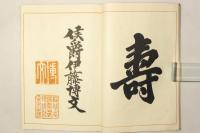 壽
侯爵伊藤博文